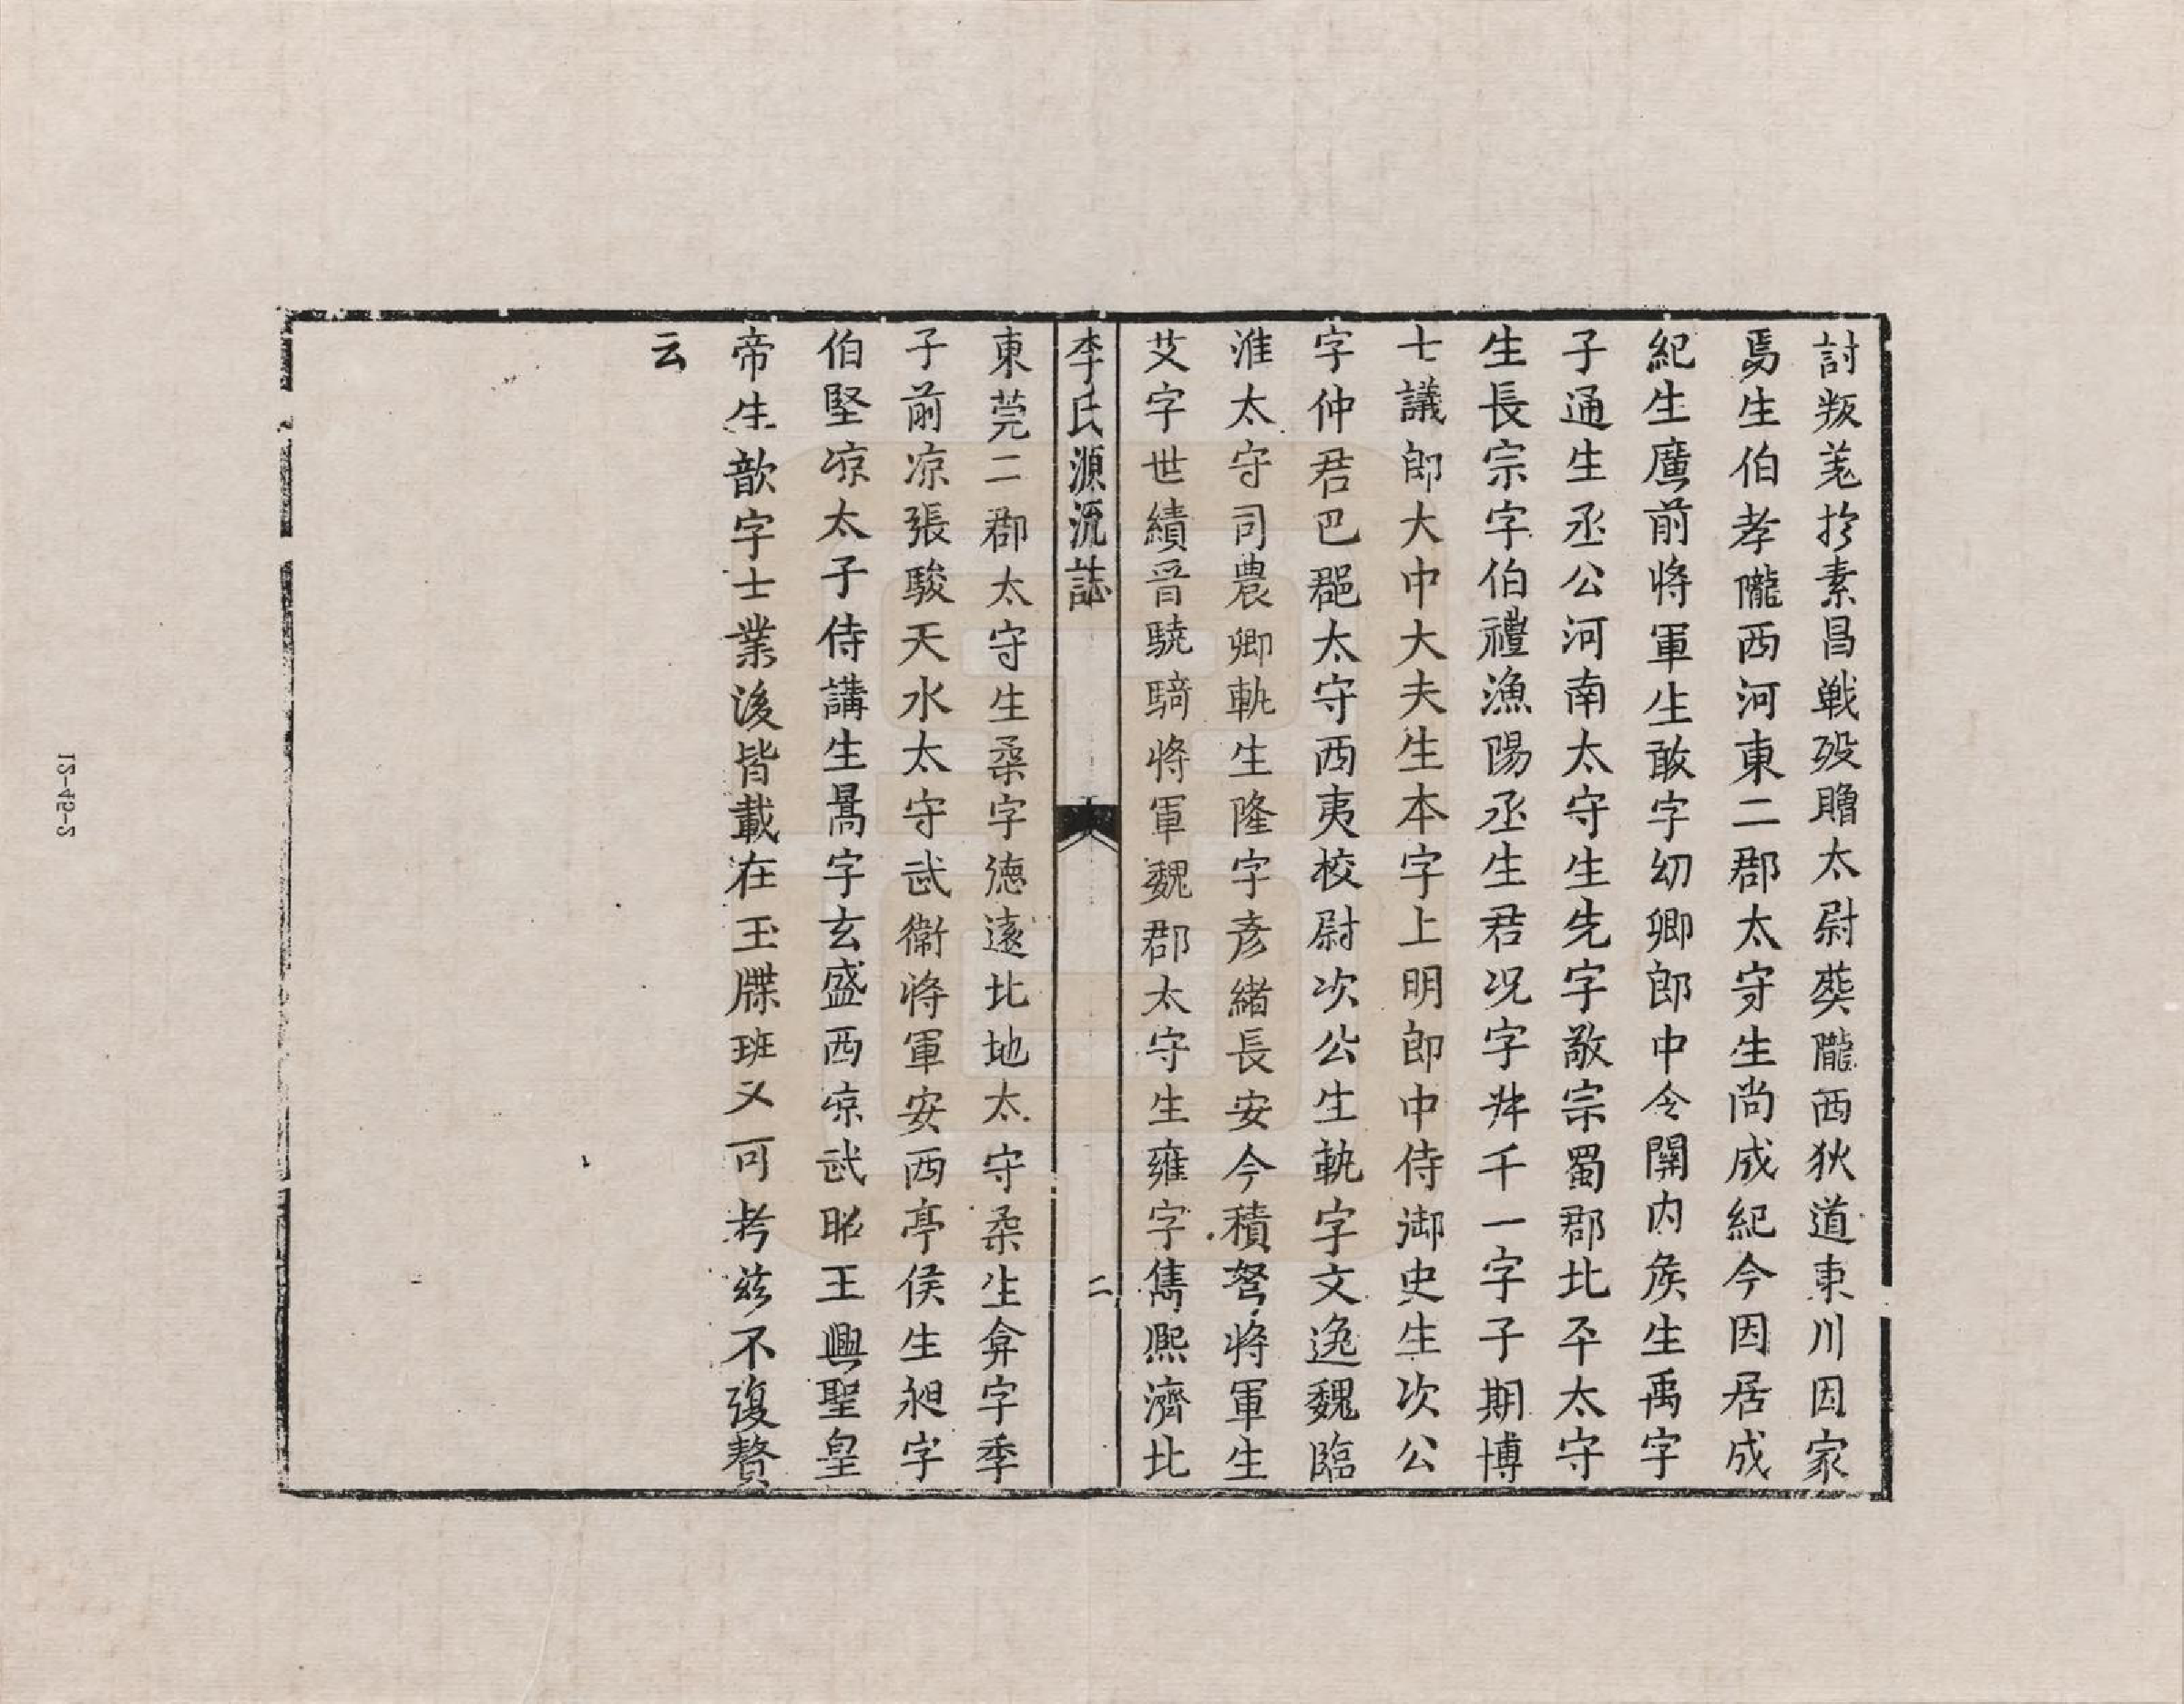 討叛羗扵素昌戦殁贈太尉𦵏隴西狄道東川因家
焉生伯孝隴西河東二郡太守生尚成紀今因居成
紀生廣前将軍生敢字幼卿郎中令関内矦生禹字
子通生丞公河南太守生先字敬宗蜀郡北平太守
生長宗字伯禮漁陽丞生君况字牂千一字子期博
士議郎大中大夫生本字上明郎中侍御史生次公
字仲君巴郡太守西夷校尉次公生軌字文逸魏臨
淮太守司農卿軌生隆字彦緒長安今積弩将軍生
艾字世績晋驍騎将軍魏郡太守生雍字雋熙濟比
李氏源流誌
二
東莞二郡太守生桑字德逺北地太守柔生弇字季
子前凉張駿天水太守武衛将軍安西亭侯生昶字
伯堅凉太子侍講生暠字玄盛西凉武昭王興聖皇
帝生歆字士業後皆載在玉牒班又可考兹不復贅
云
TS-42-2